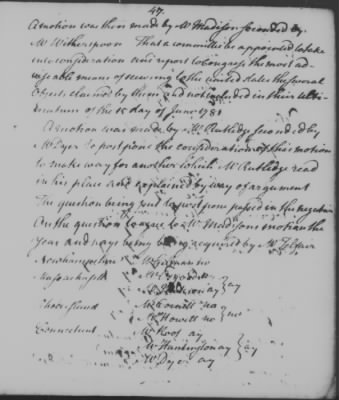 47.
A motion was then made by Mr Madison seconded by
Mr Witherspoon That a committee be appointed to take
into consideration and report to Congress the most ad-
viseable means of securing to the united states the several
objects claimed by them and not included in their Ulti-
matum of the 15 day of June 1781
A motion was made by Mr Rutledge Seconded by
Mr Dyer to postpone the consideration of this motion
to make way for another which Mr Rutledge read
in his place and explained by way of argument
The question being put to postpone passed in the negative
On the question to agree to Mr Madisons motion the
yeas and nays being required by Mr Telfair
New hampshire Mr Gilman no
Massachusetts
ay
Rhode Island Mr Cornell no
Mr Howell no } no
Connecticut Mr Root ay
Mr Huntington ay } ay
Mr Dyer ay